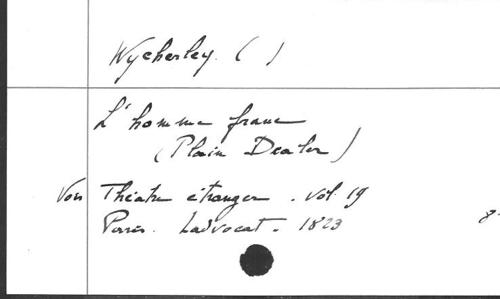 Wycherley. ( )
L'homme franc
(Plain Dealer)
Voir Théatre étranger. vol. 19
Paris. Ladvocat. 1823 8°